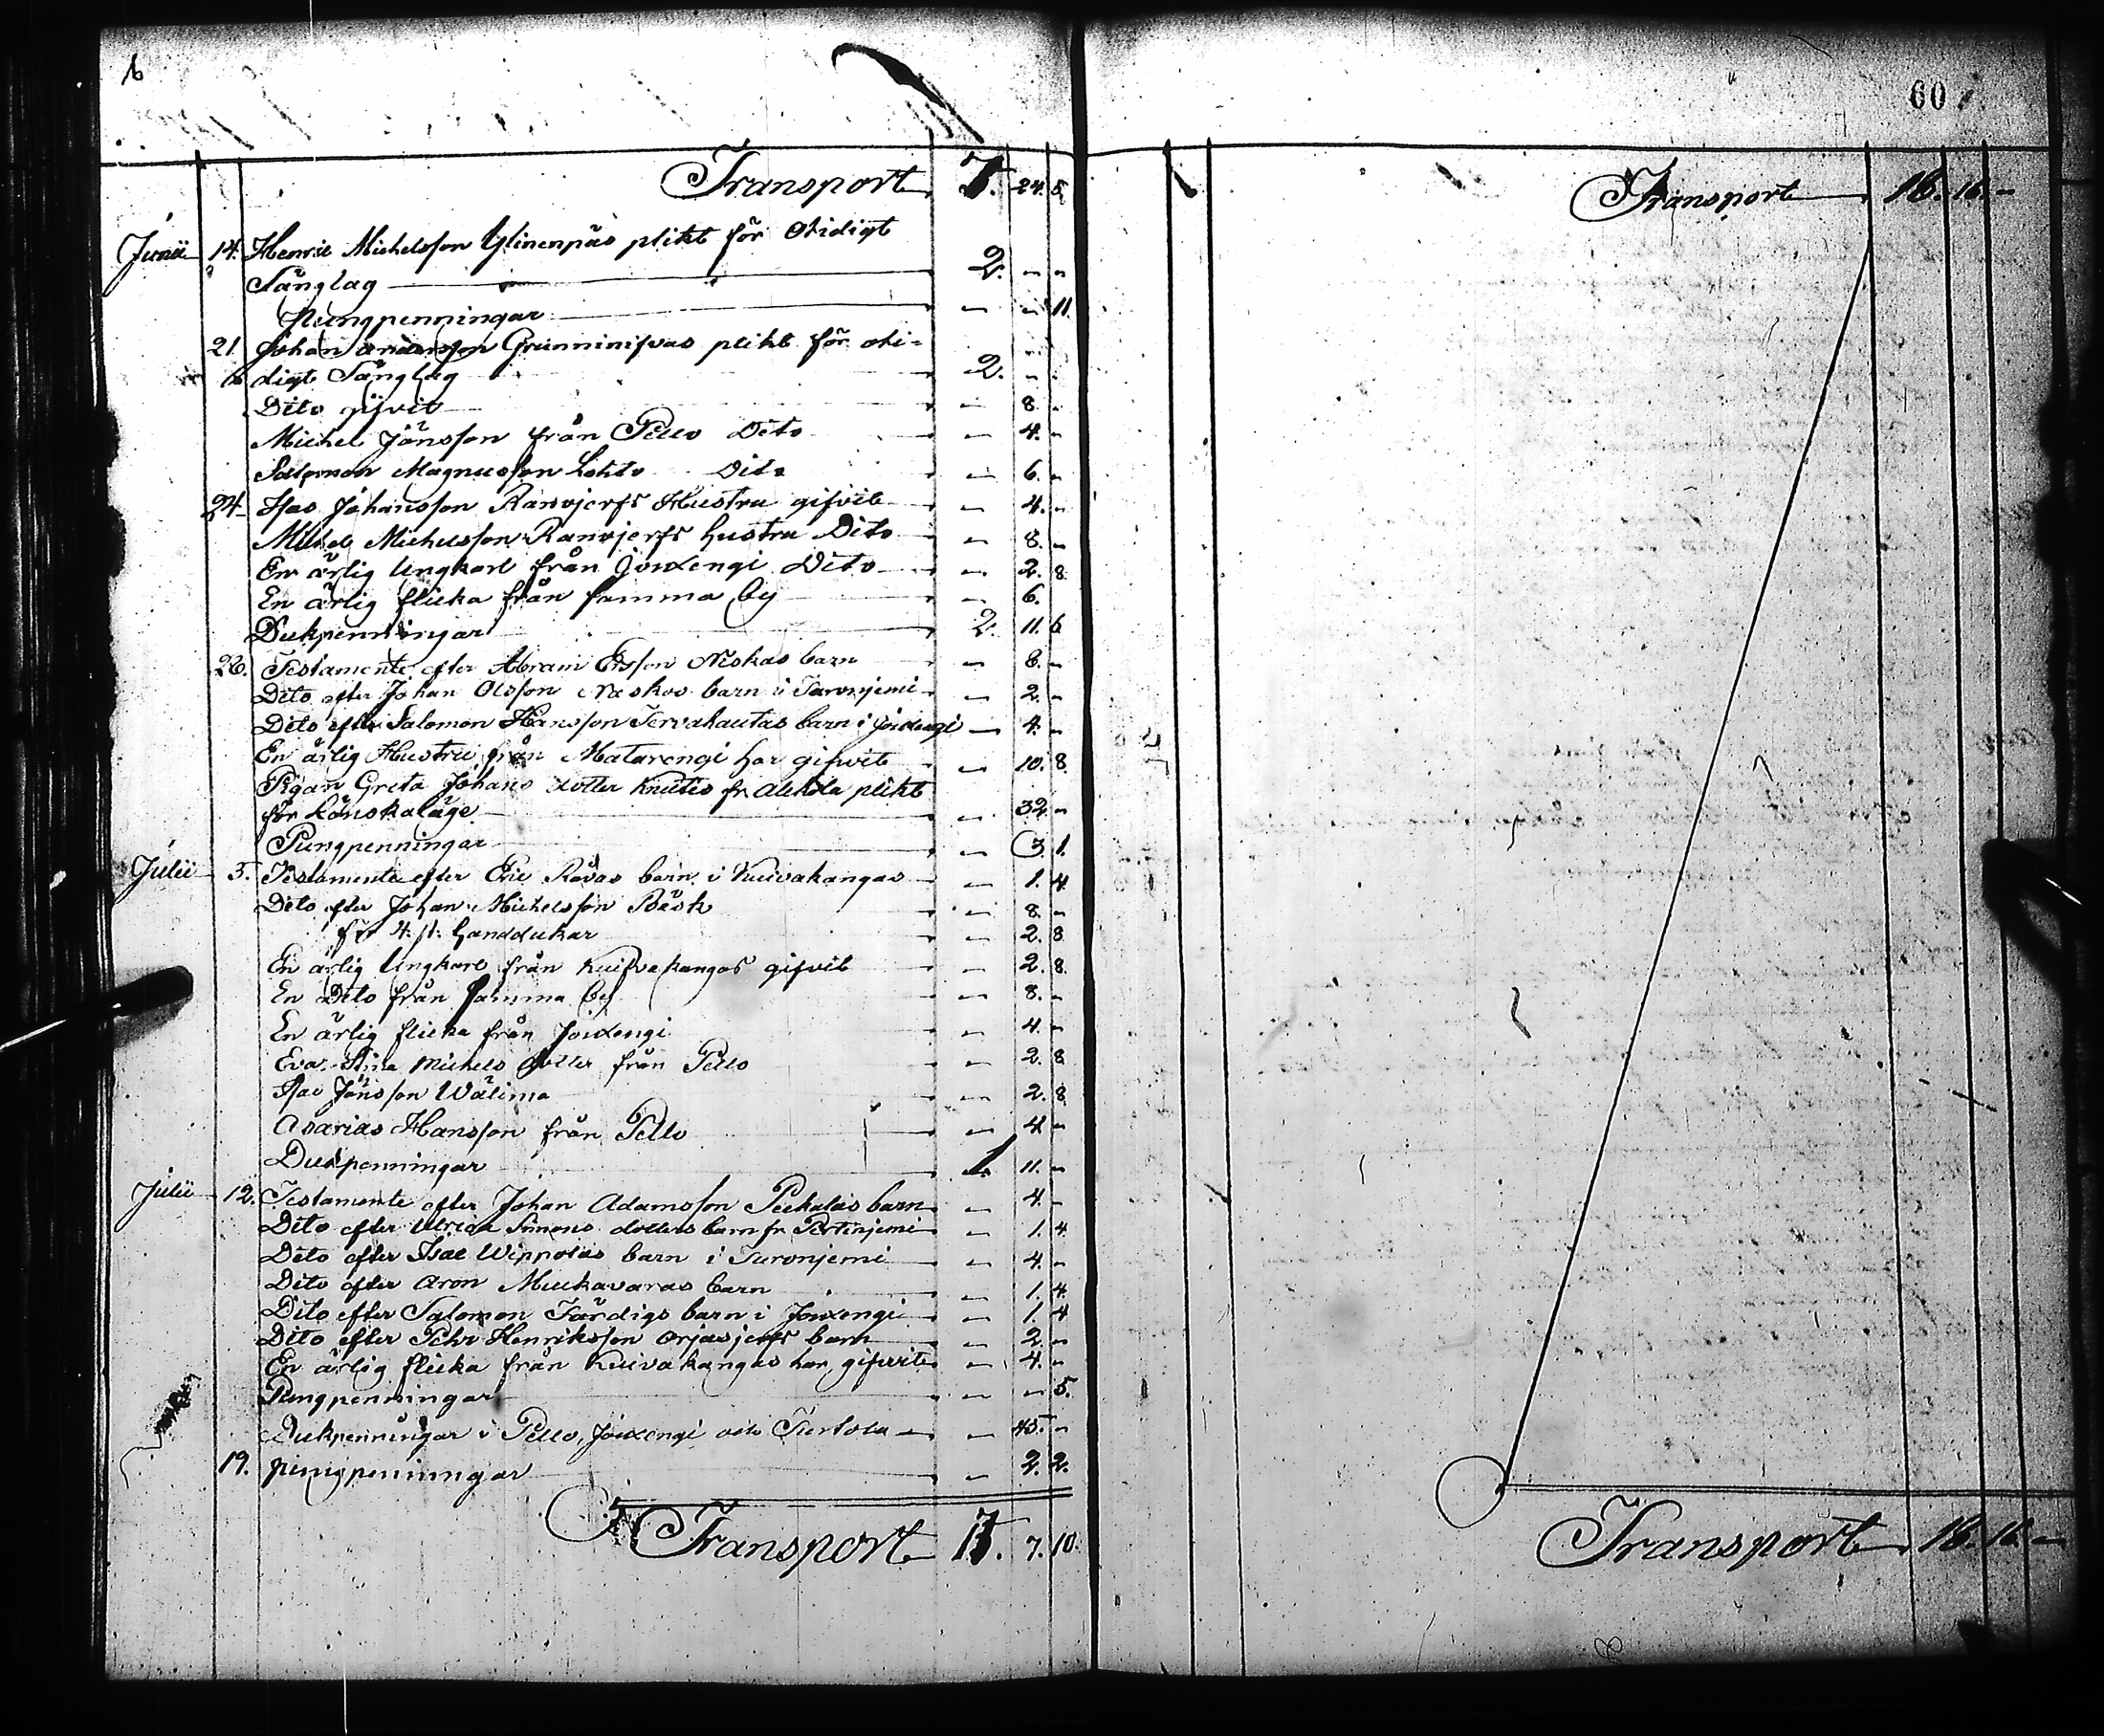 Transport 7. 24. 5.
Junii 14. Henric Michelsson Ylinenpäs plikt för otidigt
Sänglag 2. - -
Pungpenningar - - 11.
21. Johan Andersson plikt för oti-
digt Sänglag 2. - -
Dito gifvit - 8. -
Michel Jönsson från Pello Dito - 4. -
Salomon Magnusson Lohto Dito - 6. -
24. Isac Johansson Ranvjerfs Hustru gifvit - 4. -
Michel Michelsson Ranvjerfs hustru Dito - 8. -
En ärlig Ungkarl från Jouxengi Dito - 2. 8.
En ärlig flicka från samma by - 6.
Dukpenningar 2. 11. 6
26. Testamente efter Abram Ersson Niskas barn - 8. -
Dito efter Johan Olsson Niskas barn i Turonjemi - 2. -
Dito efter Salomon Hansson Tervahautas barn i Jouxengi - 4. -
En ärlig Hustru från Matarengi har gifwit - 10. 8.
Pigan Greta Johans dotter Knuties fr. Alkula plikt
för Lönskaläge - 32. -
Pungpenningar - 3. 1.
Julii 5. Testamente efter Eric Rävas barn i Kuivakangas - 1. 4
Dito efter Johan Michelsson Bäsk - 8. -
för 4. st. handdukar - 2. 8
En ärlig Ungkarl från Kuivakangas gifvit - 2. 8.
En Dito från samma by - 8. -
En ärlig flicka från Jouxengi - 4. -
Eva Stina Michels dotter från Pello - 2. 8
Isac Jönsson Wälima - 2. 8
Asarias Hansson från Pello - 4 -
Dukpenningar 1. 11. -
Julii 12. Testamente efter Johan Adamsson Peekalas barn - 4. -
Dito efter Ulrica Simons dotters barn fr. Portinjemi - 1. 4
Dito efter Isac Wippolas barn i Turonjemi - 4. -
Dito efter Aron Muckavaras barn - 1. 4
Dito efter Salomon Färdigs barn i Jouxengi - 1. 4
Dito efter Pehr Henriksson Orjasjerfs barn - 2. -
En ärlig flicka från Kuivakangas har gifwit - 4. -
Pungpenningar - - 5.
Dukpenningar i Pello, Jouxengi och Turtola - 45. -
19. pungpenningar - 2. 2.
Transport 17. 7. 10.
60
Transport 18. 16. -
Transport 18. 16. -